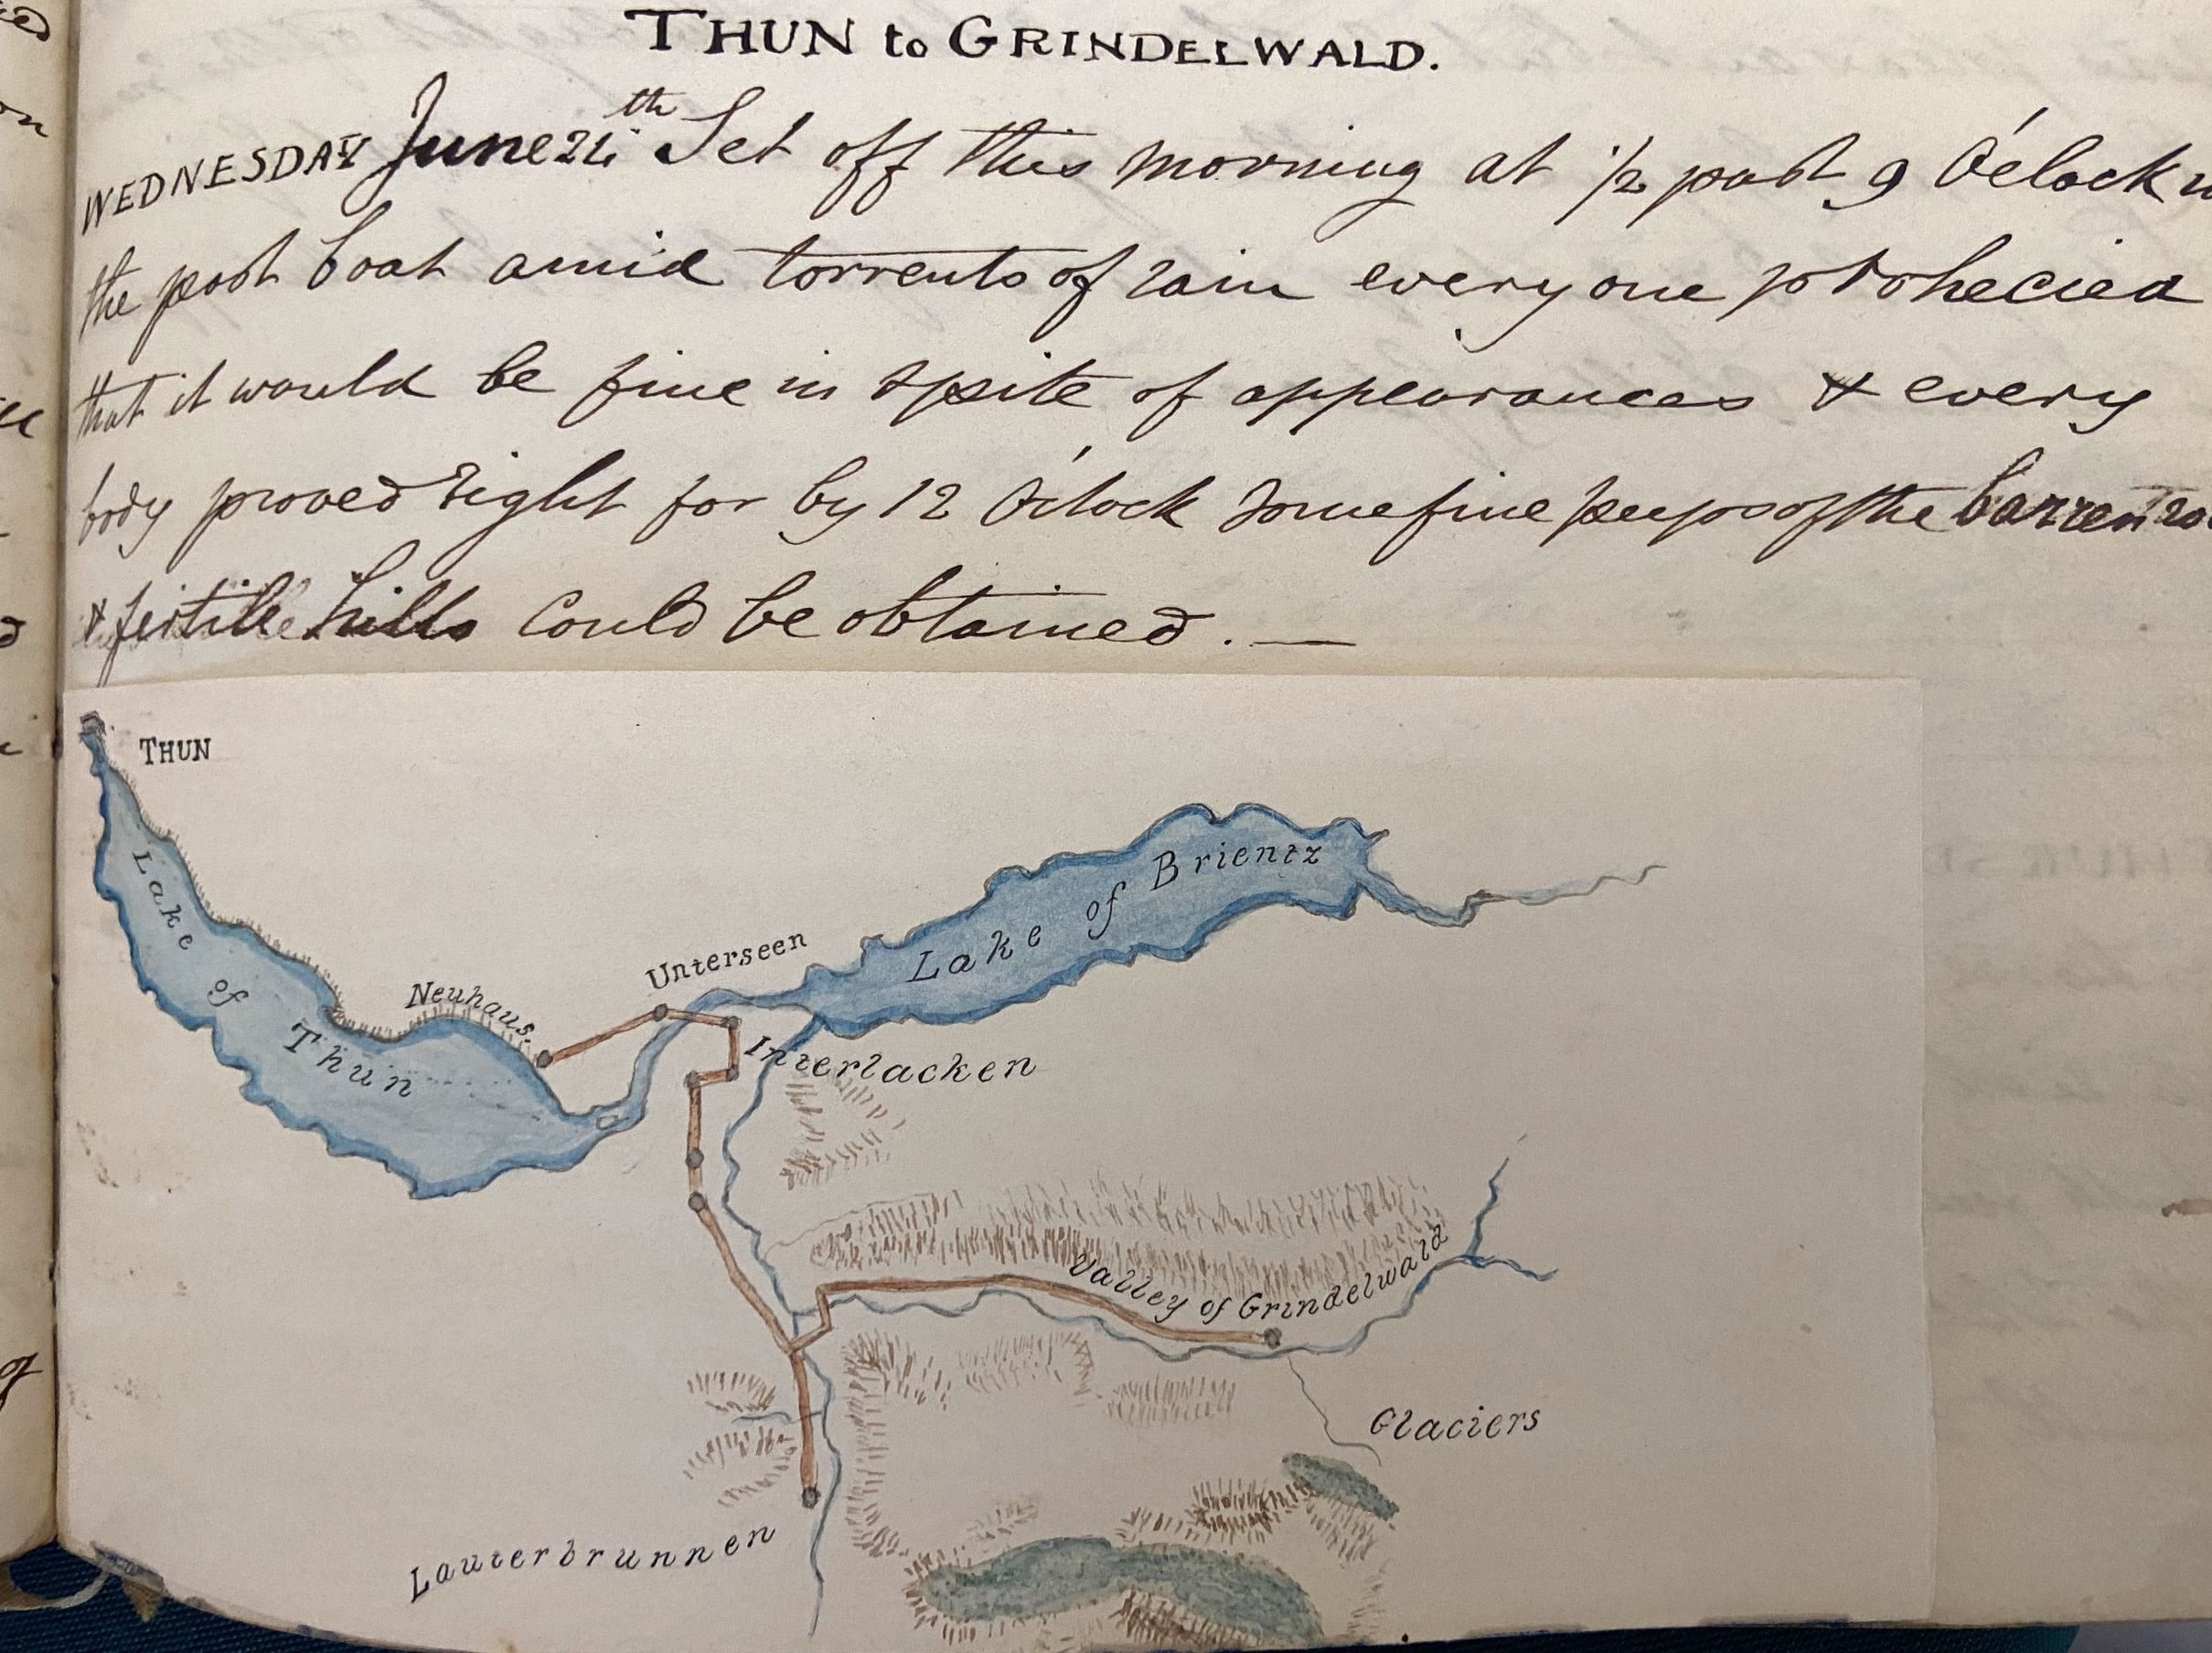 THUN to GRINDELWALD.
WEDNESDAY June 24th Set off this morning at ½ past 9 O'clock
the post boat amid torrents of rain every one prohecied
that it would be fine in spite of appearances & every
body proved right for by 12 O'clock some fine peeps of the barren
& fertile hills could be obtained. —
THUN
Lake of Thun
Neuhaus.
Unterseen
Lake of Brientz
Interlacken
Valley of Grindelwald
Glaciers
Lauterbrunnen